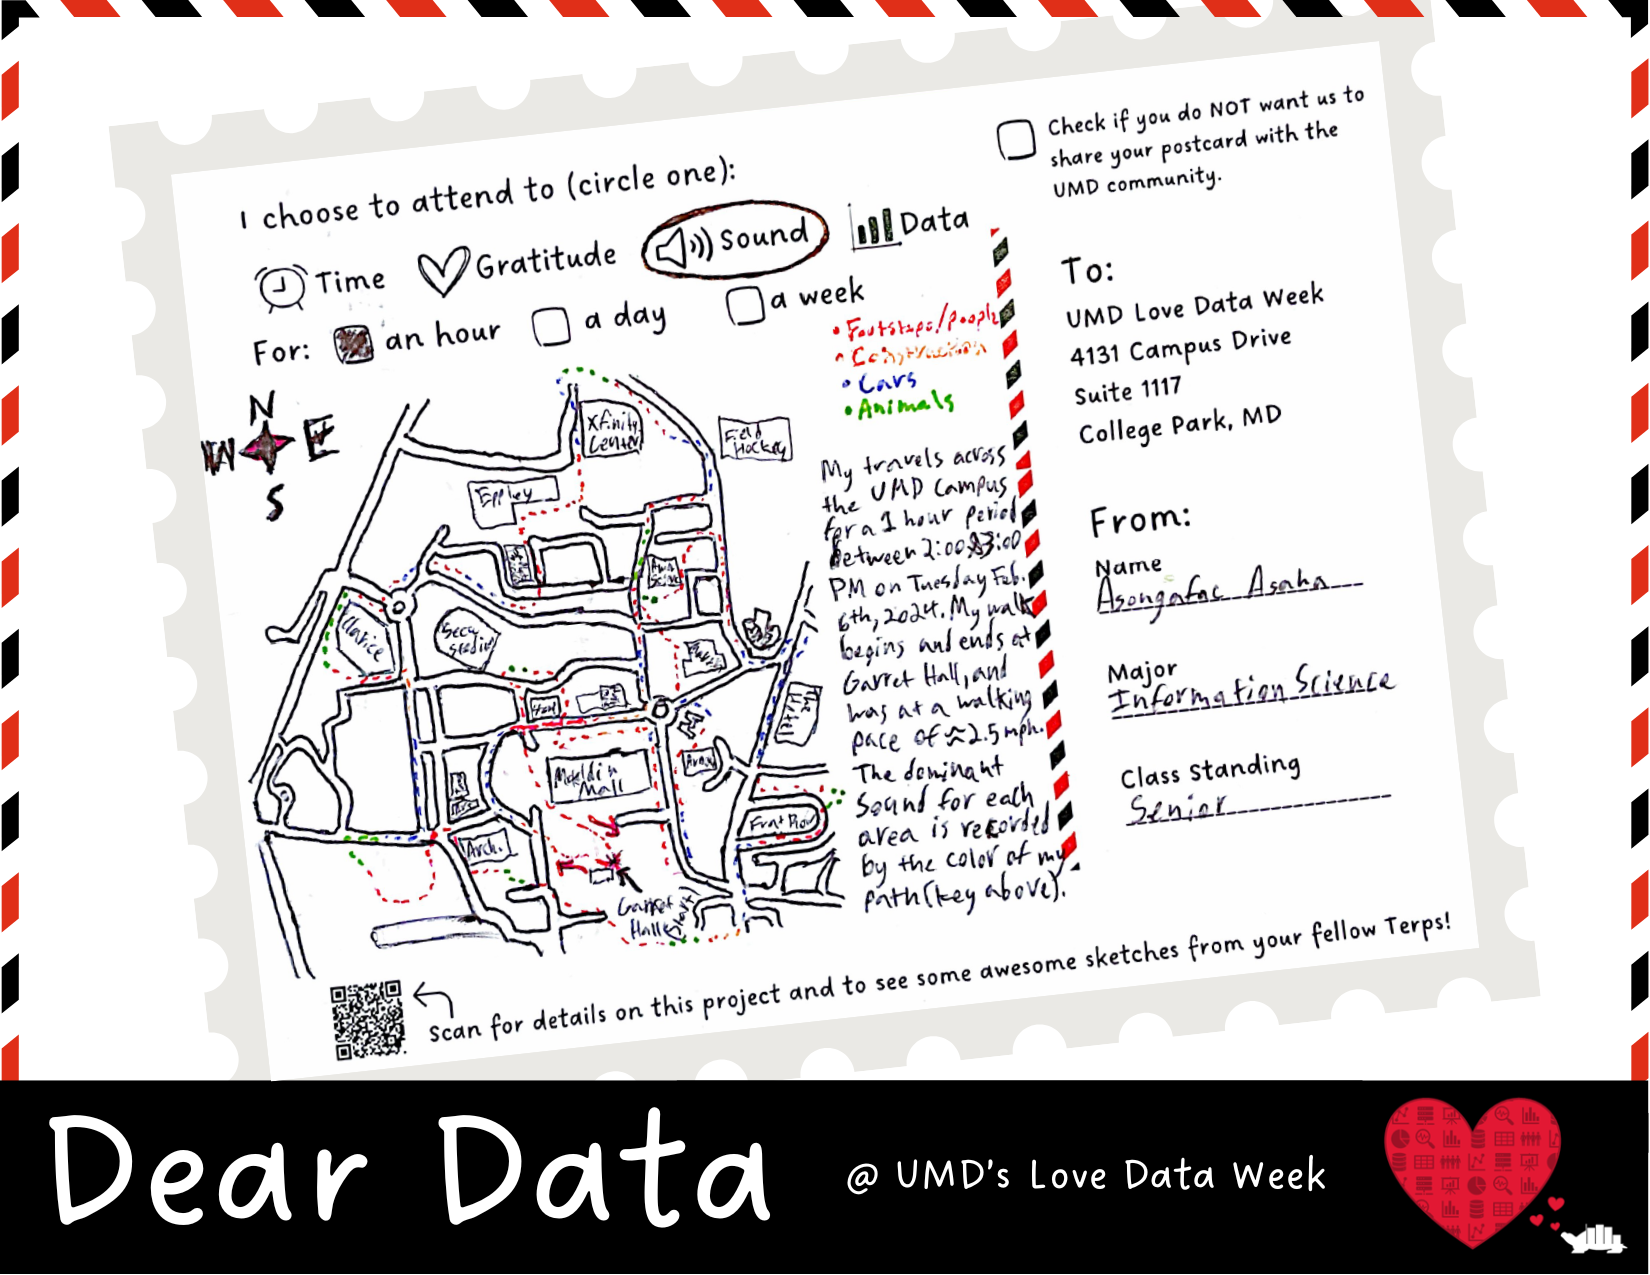 I choose to attend to (circle one):
Time Gratitude Sound Data
For: an hour a day a week
Check if you do NOT want us to
share your postcard with the
UMD community.
• Footsteps/people
• Construction
• Cars
• Animals
N
W E
S
Xfinity
Center
Field
Hockey
Eppley
Clarice
Secu
Stadium
The
Hotel
Mckeldin
Mall
Frat Row
Arch.
Garret
Hall
My travels across
the UMD Campus
for a 1 hour period
Between 2:00 & 3:00
PM on Tuesday Feb.
6th, 2024. My walk
begins and ends at
Garret Hall, and
was at a walking
pace of ≈ 2.5 mph.
The dominant
Sound for each
area is recorded
by the color of my
path (key above).
To:
UMD Love Data Week
4131 Campus Drive
Suite 1117
College Park, MD
From:
Name
Asongafac Asaha
Major
Information Science
Class Standing
Senior
Scan for details on this project and to see some awesome sketches from your fellow Terps!
Dear Data @ UMD's Love Data Week